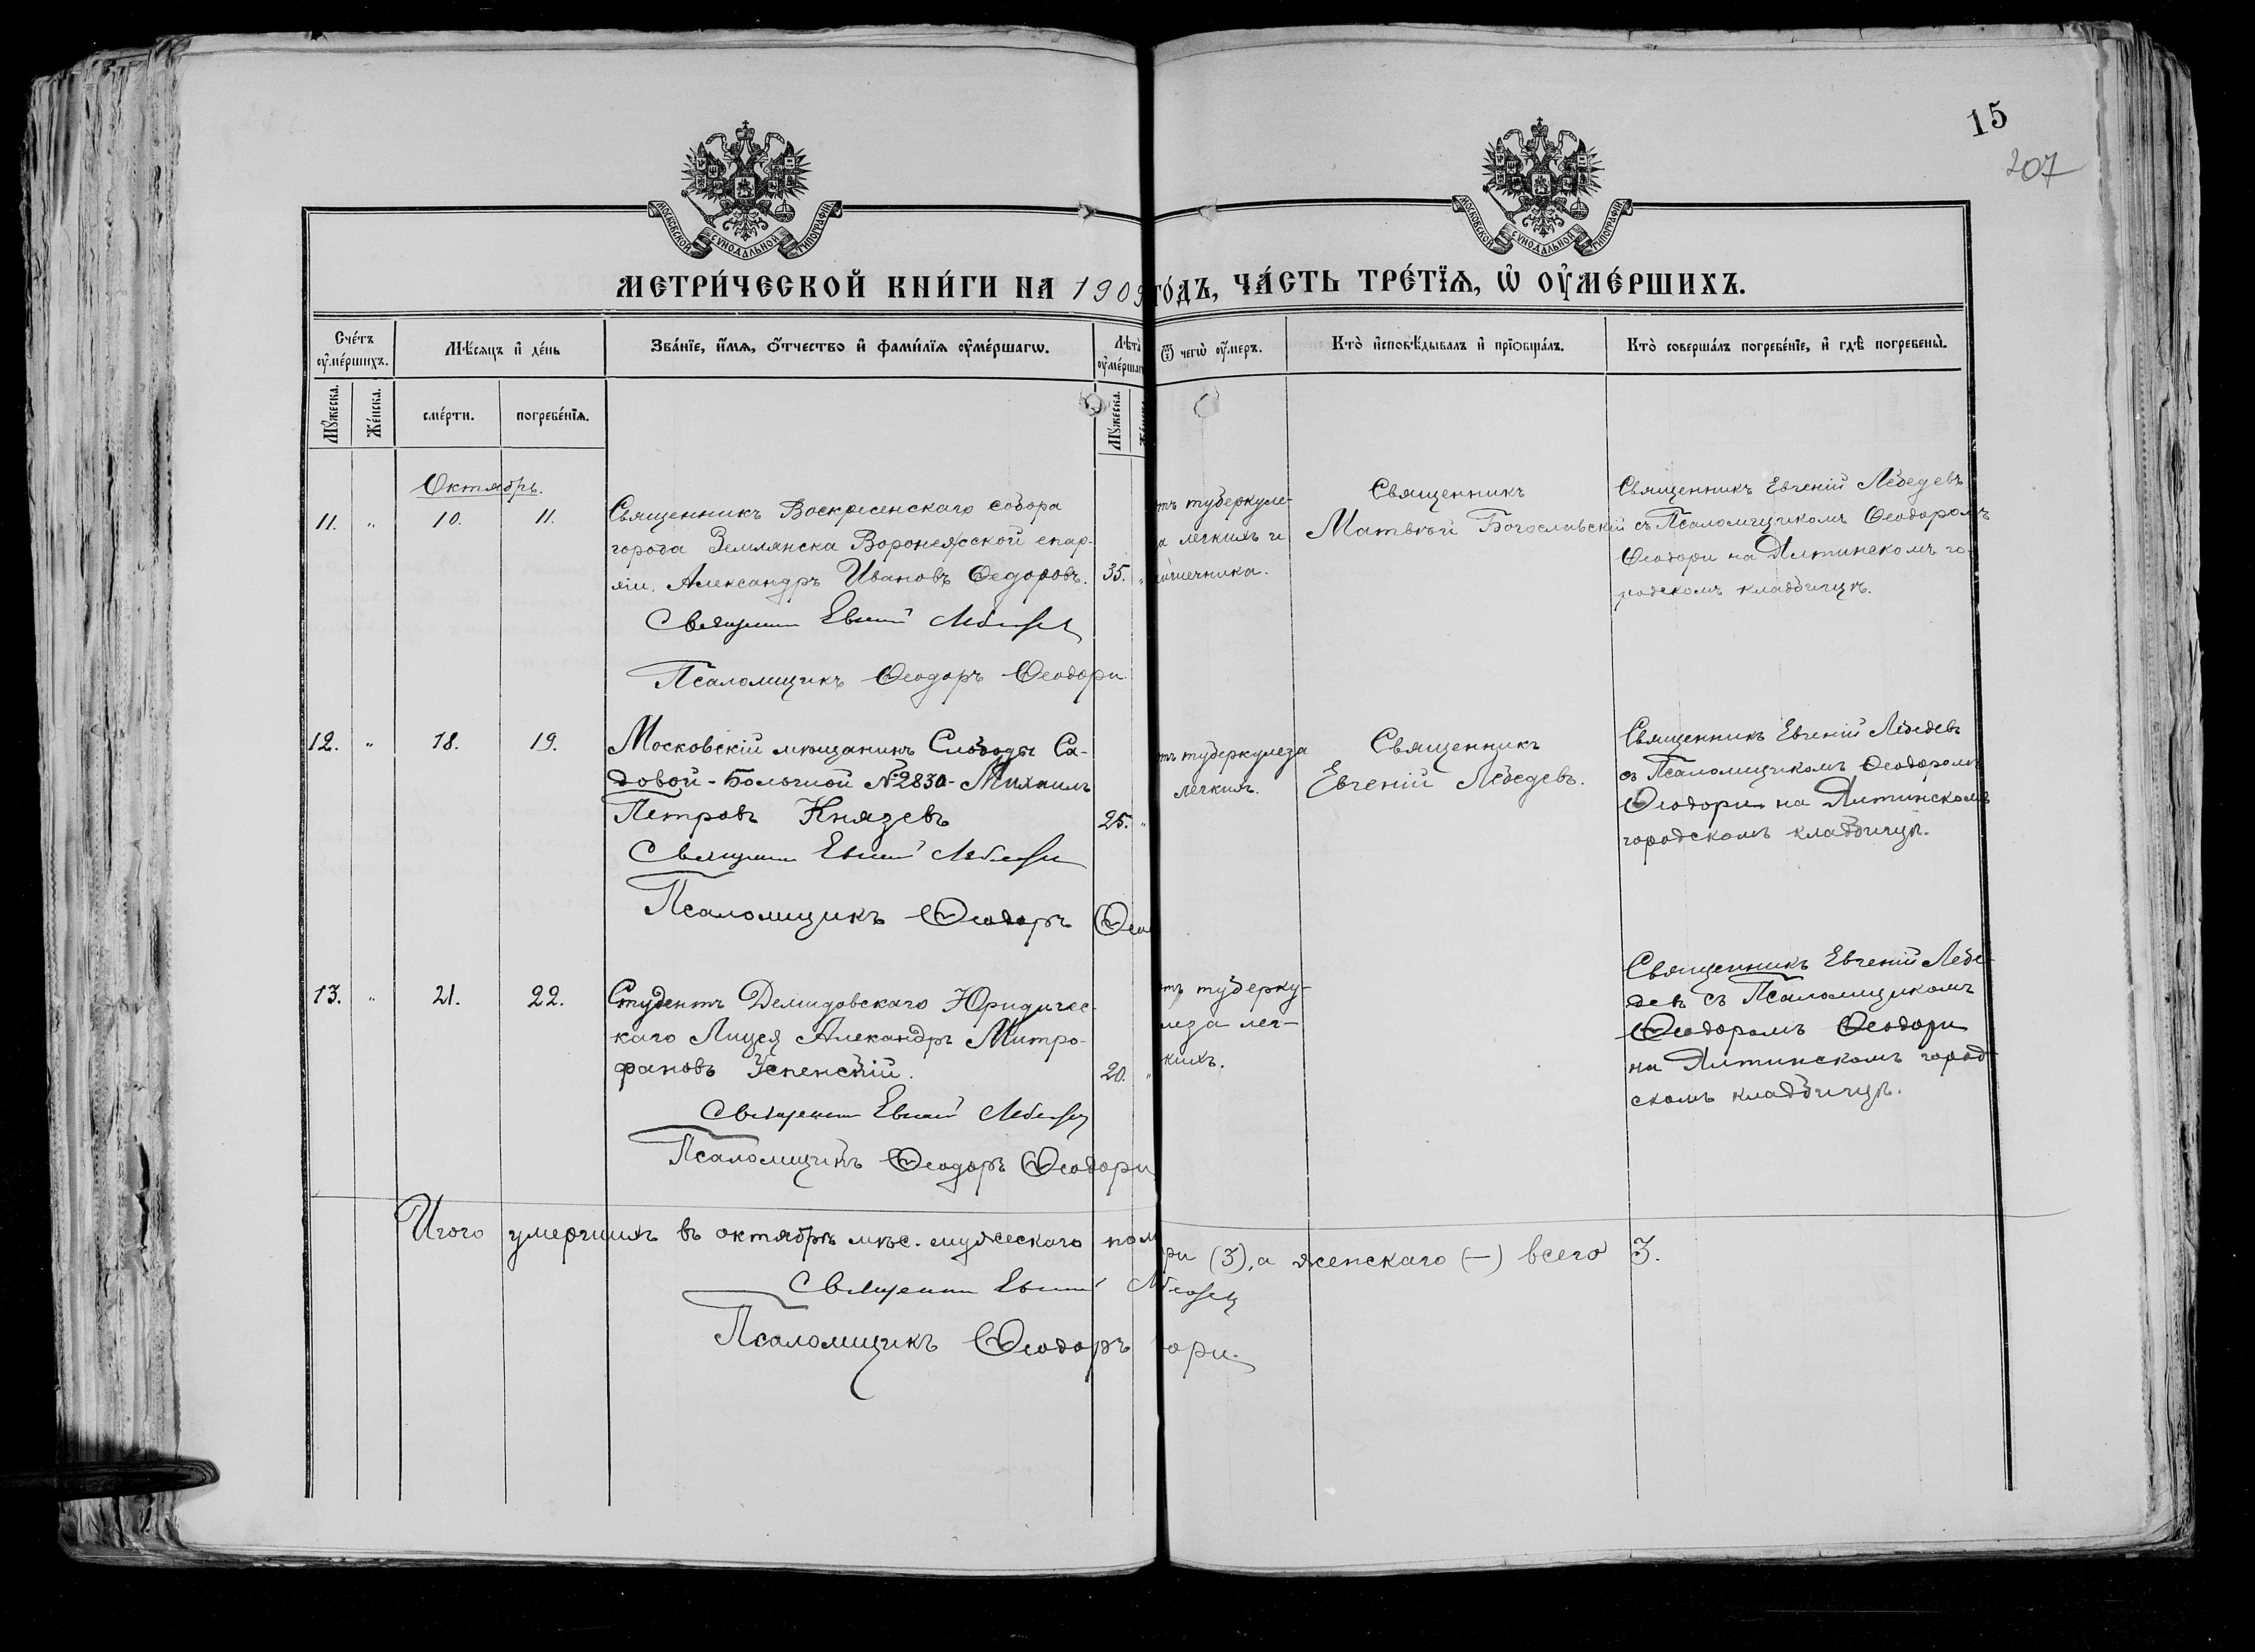 15
207
МОСКОВСКОЙ СѴНОДАЛЬНОЙ ТИПОГРАФІИ
МОСКОВСКОЙ СѴНОДАЛЬНОЙ ТИПОГРАФІИ
МЕТРИ́ЧЕСКОЙ КНИ́ГИ НА 1909 ГО́ДЪ, ЧА́СТЬ ТРЕ́ТЇѦ, Ѡ҆ ОУ҆МЕ́РШИХЪ.
Сче́тъ оу҆ме́ршихъ.
Мѣ́сѧцъ и҆ де́нь
Зва́нїе, и҆́мѧ, ѻ҆́тчество и҆ фами́лїѧ оу҆ме́ршагѡ.
Лѣ́та оу҆ме́ршаг
Ѿ чегѡ̀ оу҆́меръ.
Кто̀ и҆сповѣ́дывалъ и҆ прїѡбща́лъ.
Кто̀ соверша́лъ погребе́нїе, и҆ гдѣ̀ погребены̀.
Мꙋ́жеска.
Же́нска.
сме́рти.
погребе́нїѧ.
Мꙋ́жеска.
Октябрь.
11. „ 10. 11.
Священникъ Воскресенскаго собора
города Землянска Воронежской епар-
хіи, Александръ Ивановъ Ѳедоровъ. 35. „
Священникъ Евгеній Лебедевъ
Псаломщикъ Ѳеодоръ Ѳеодори.
тъ туберкуле-
а легкихъ и
кишечника.
Священникъ
Матвѣй Богославскій
Священникъ Евгеній Лебедевъ
съ Псаломщикомъ Ѳеодоромъ
Ѳеодори на Ялтинскомъ го-
родскомъ кладбищѣ.
12. „ 18. 19.
Московскій мѣщанинъ Слободы Са-
довой-Большой №2830- Михаилъ
Петровъ Князевъ 25. „
Священникъ Евгеній Лебедевъ
Псаломщикъ Ѳеодоръ Ѳео
тъ туберкулеза
легкихъ.
Священникъ
Евгеній Лебедевъ.
Священникъ Евгеній Лебедевъ
съ Псаломщикомъ Ѳеодоромъ
Ѳеодори на Ялтинскомъ
городскомъ кладбищѣ.
13. „ 21. 22.
Студентъ Демидовскаго Юридичес-
каго Лицея Алекандръ Митро-
фановъ Успенскій. 20. „
Священникъ Евгеній Лебедевъ
Псаломщикъ Ѳеодоръ Ѳеодори
тъ туберку-
леза лег-
кихъ.
Священникъ Евгеній Лебе-
девъ съ Псаломщикомъ
Ѳеодоромъ Ѳеодори
на Ялтинскомъ город-
скомъ кладбищѣ.
Итого умершихъ въ октябрѣ мѣс. мужескаго пол ри (3), а женскаго (—) всего 3.
Священникъ Евгеній Лебедевъ
Псаломщикъ Ѳеодоръ ори.